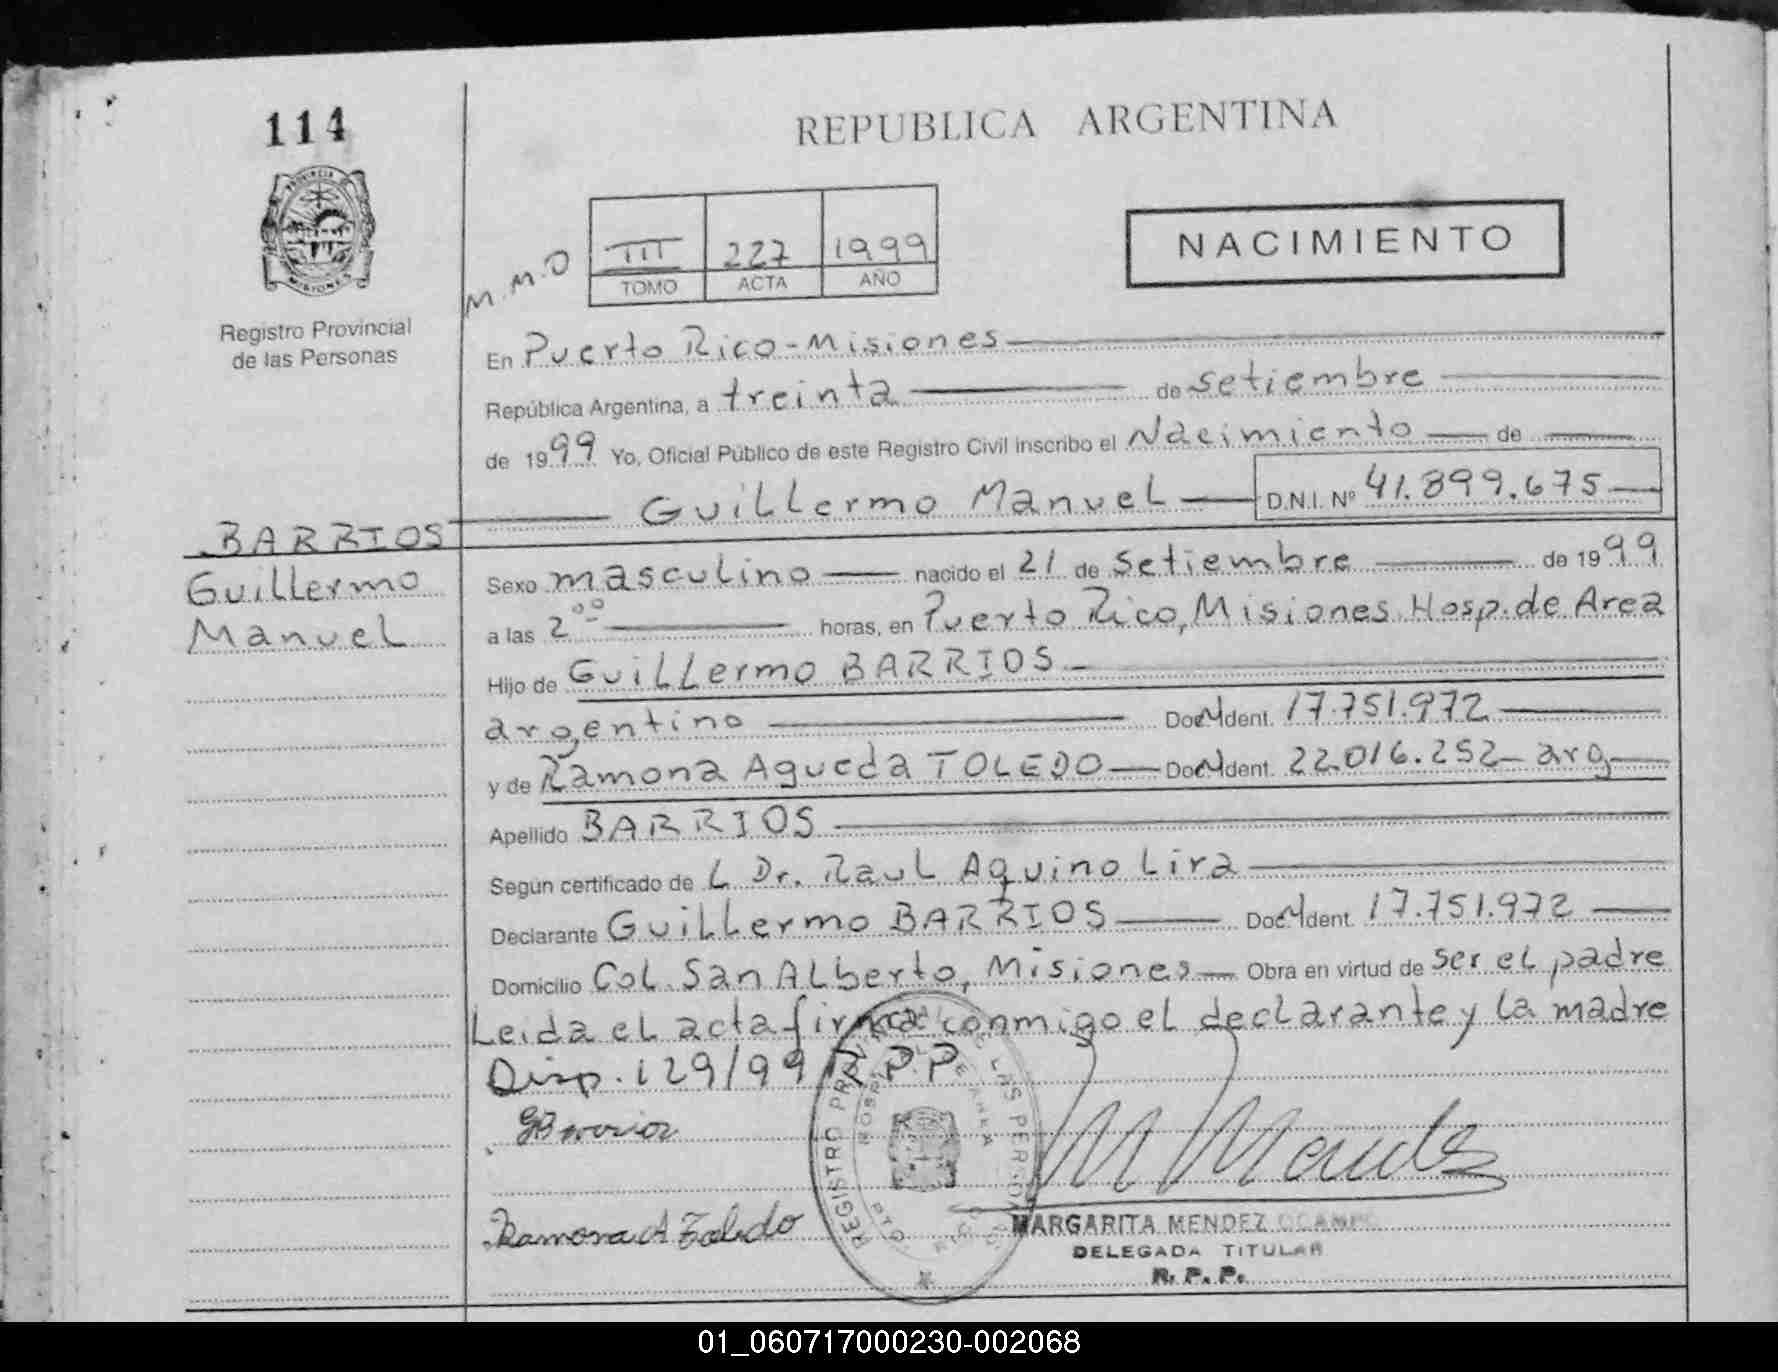 114
REPUBLICA ARGENTINA
PROVINCIA DE
MISIONES
Registro Provincial
de las Personas
M.M.O
III 227 1999
TOMO ACTA AÑO
NACIMIENTO
En Puerto Rico-Misiones
República Argentina, a treinta de setiembre
de 1999 Yo, Oficial Público de este Registro Civil inscribo el Nacimiento de
Guillermo Manuel D.N.I. Nº 41.899.675
BARRIOS
Guillermo
Manuel
Sexo masculino nacido el 21 de setiembre de 1999
a las 2 00 horas, en Puerto Rico, Misiones Hosp. de Area
Hijo de Guillermo BARRIOS.-
argentino Doc. Ident. 17.751.972
y de Ramona Agueda TOLEDO Doc. Ident. 22.016.252 - arg
Apellido BARRIOS
Según certificado de L Dr. Raul Aquino Lira
Declarante Guillermo BARRIOS Doc. Ident. 17.751.972
Domicilio Col. San Alberto, Misiones Obra en virtud de ser el padre
Leida el acta firma conmigo el declarante y la madre
Disp. 129/99 R.P.P.
REGISTRO LAS PERSONAS
Ramona A Toledo
MARGARITA MENDEZ OCAMPO
DELEGADA TITULAR
R. P. P.
01_060717000230-002068